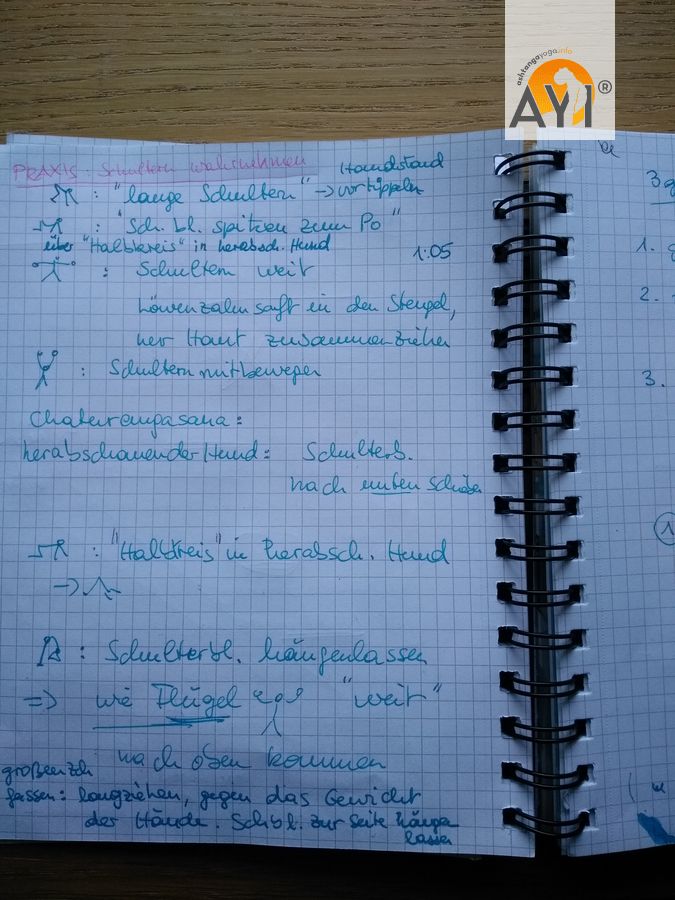 ashtangayoga.info
AYI®
PRAXIS: Schultern wahrnehmen
Handstand
: "lange Schultern" → vortippeln
: "Sch. bl. spitzen zum Po"
über "Halbkreis" in herabsch. Hund
1:05
: Schultern weit
Löwenzahnsaft in den Stengel,
Haut zusammenziehen
: Schultern mitbewegen
Chaturangasana:
herabschauender Hund: Schulterb.
nach unten
: "Halbkreis" in herabsch. Hund
→
: Schulterbl. hängenlassen
=> wie Flügel "weit"
nach oben kommen
großen zeh
fassen: langziehen, gegen das Gewicht
der Hände. Schbl. zur Seite hängen
lassen
3
1.
2.
3.
1